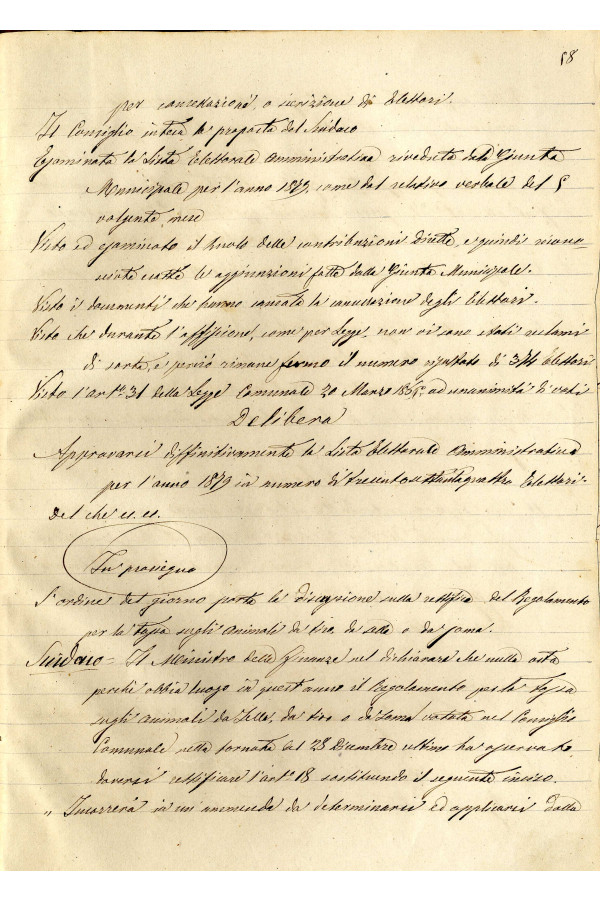 58
per cancellazione, o iscrizione di Elettori.
Il Consiglio intesa la proposta del Sindaco
Esaminata la Lista Elettorale Amministrativa riveduta dalla Giunta
Municipale per l'anno 1879, come dal relativo verbale del 5
volgente mese
Visto ed esaminato il Ruolo delle contribuzioni Dirette, e quindi ricono-
sciute esatte le aggiunzioni fatte dalla Giunta Municipale.
Visto i documenti che hanno causato la cancellazione degli Elettori.
Visto che durante l'affissione, come per Legge, non vi sono stati reclami
di sorta, e perciò rimane fermo il numero di 374 Elettori
Visto l'art.° 31 della Legge Comunale 20 Marzo 1865, ad unanimità di voti
Delibera
Approvarsi diffinitivamente la Lista Elettorale Amministrativa
per l'anno 1879 in numero di trecentosettantaquattro Elettori.
Del che ec. ec.
In prosieguo
L'ordine del giorno porta la discussione sulla rettifica del Regolamento
per la tassa sugli animali da tiro, da sella o da soma.
Sindaco = Il Ministro delle Finanze nel dichiarare che nulla osta
perchè abbia luogo in quest'anno il Regolamento per la tassa
sugli animali da Sella, da tiro o da soma votata nel Consiglio
Comunale nella tornata del 28 Dicembre ultimo ha osservato
doversi rettificare l'art.° 18 sostituendo il seguente inciso.
" Incorrerà in un'ammenda da determinarsi ed applicarsi dalla